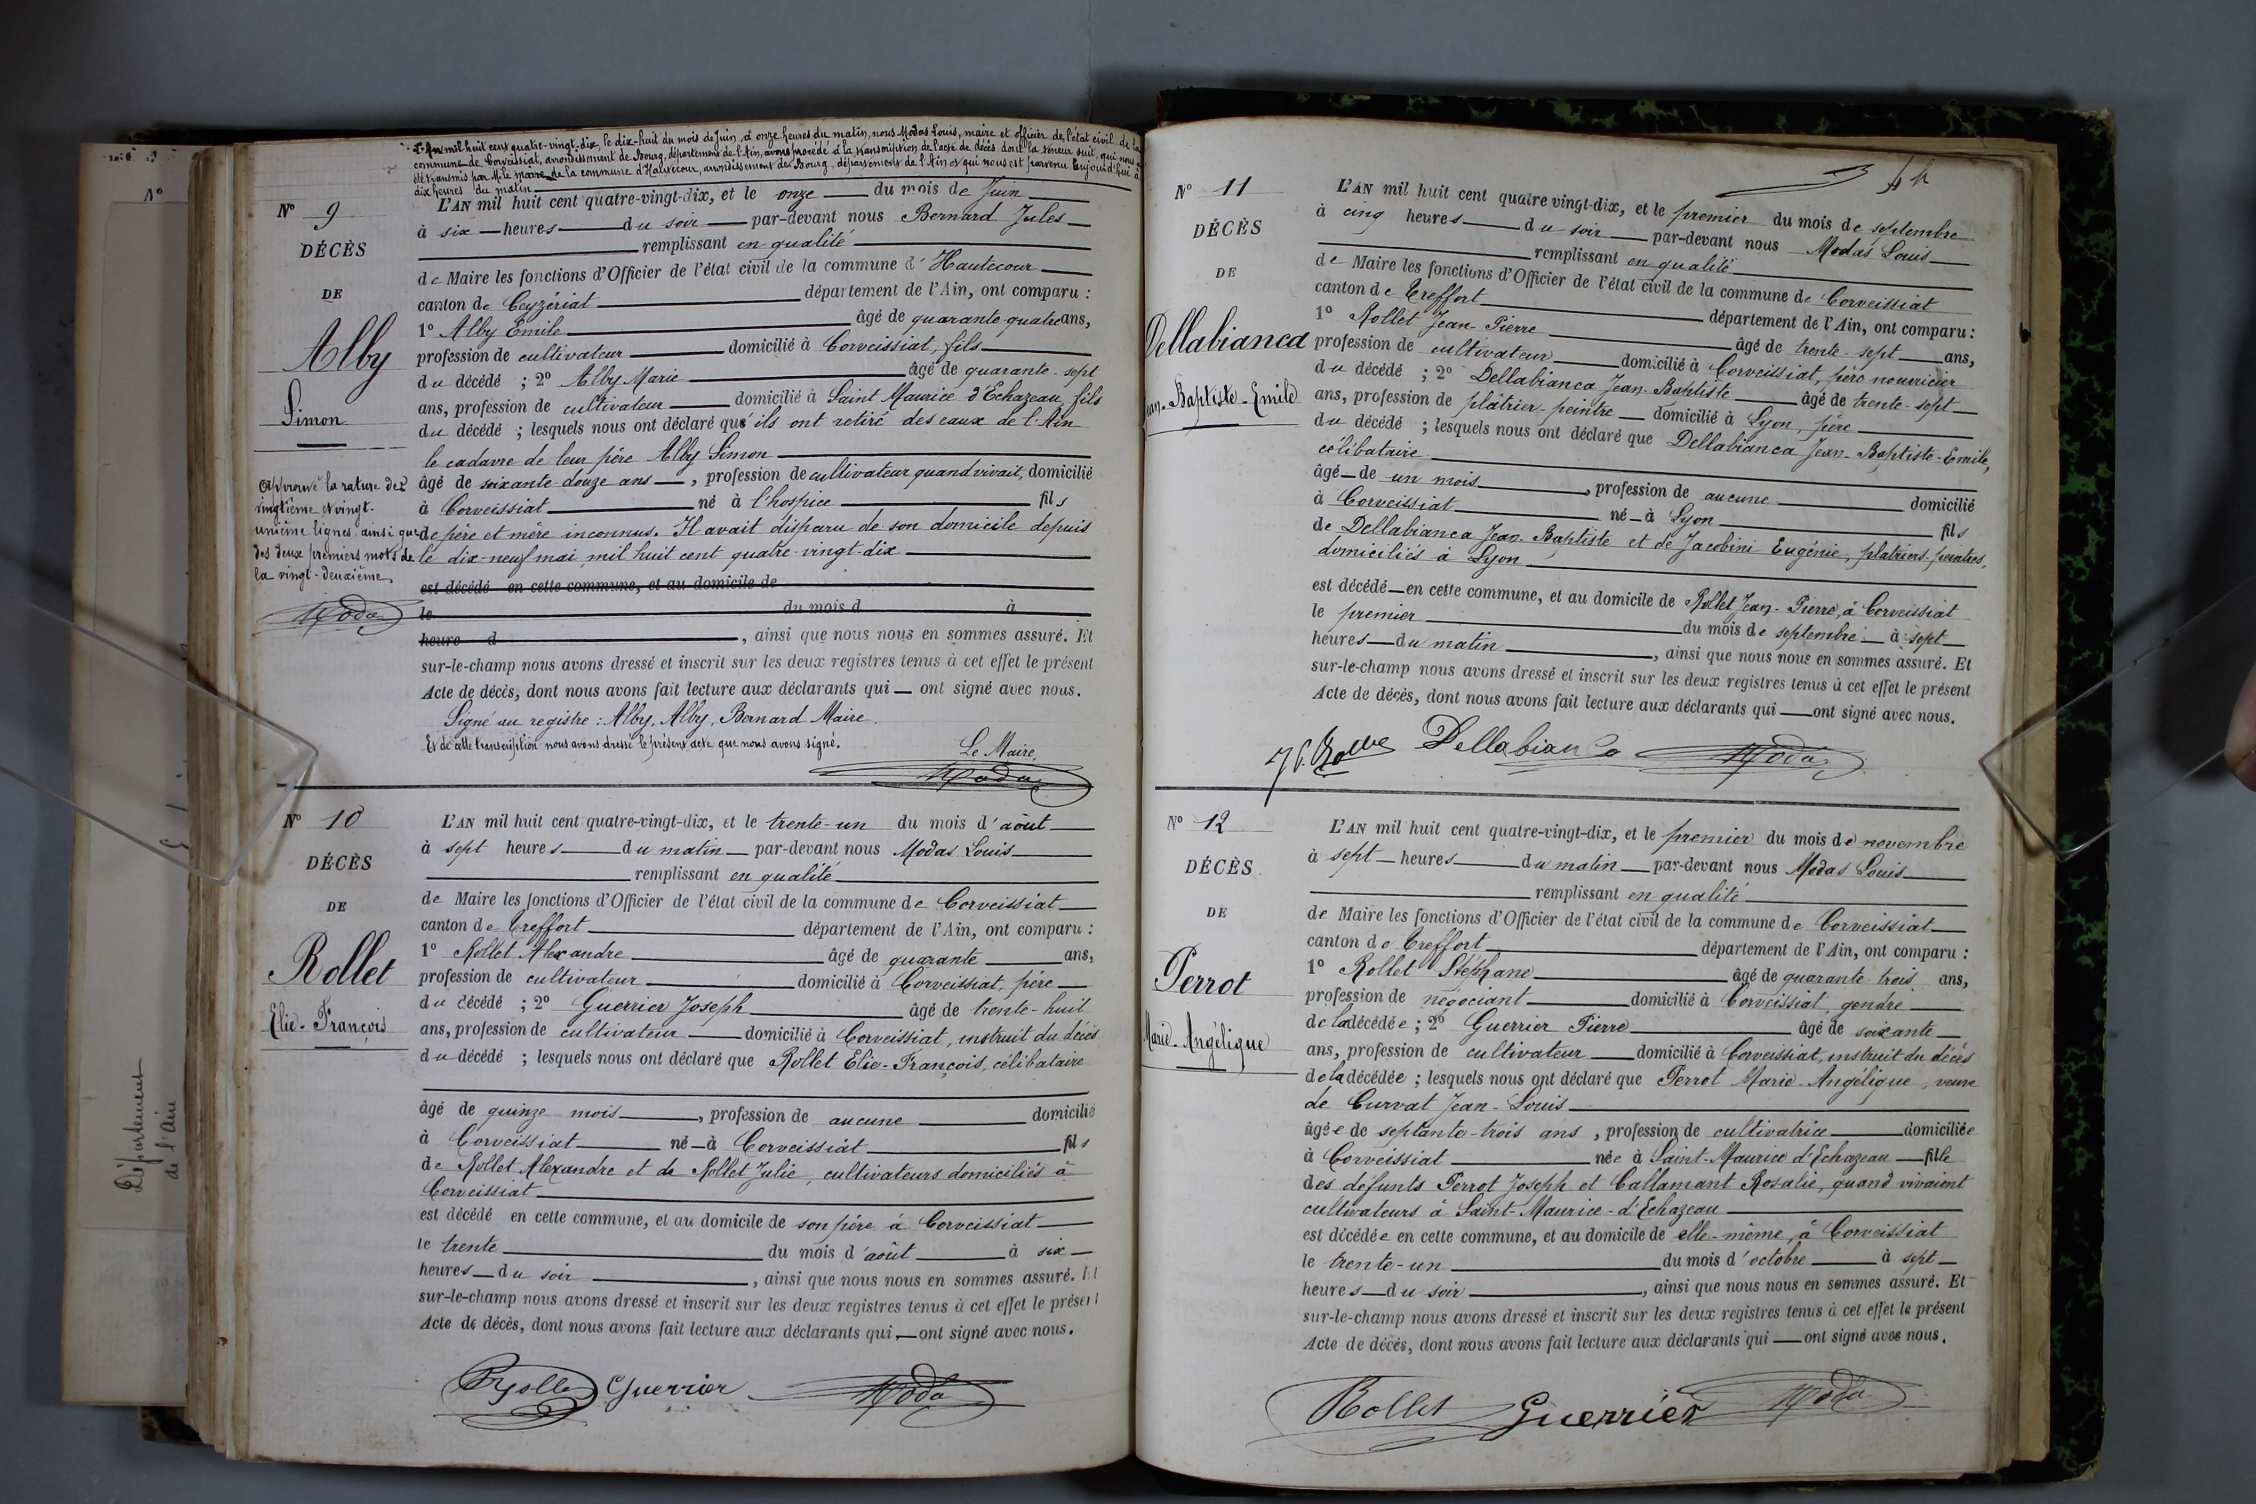 L'An mil huit cent quatre-vingt-dix, le dix-huit du mois de Juin, à onze heures du matin, nous Modas Louis, maire et officier de l'état civil de la
commune de Corveissiat, arrondissement de Bourg, département de l'Ain, avons procédé à la transcription de l'acte de décès dont la teneur suit, qui nous a
été transmis par M. le maire de la commune d'Hautecour, arrondissement de Bourg, département de l'Ain et qui nous est parvenu aujourd'hui à
dix heures du matin
N° 9
DÉCÈS
DE
Alby
Simon
Approuvé la rature des
vingtième et vingt-
unième lignes ainsi que
des deux premiers mots de
la vingt-deuxième.
Modas
L'AN mil huit cent quatre-vingt-dix, et le onze du mois de Juin
à six heures du soir par-devant nous Bernard Jules
remplissant en qualité
de Maire les fonctions d'Officier de l'état civil de la commune d'Hautecour
canton de Ceyzériat département de l'Ain, ont comparu :
1° Alby Emile âgé de quarante-quatre ans,
profession de cultivateur domicilié à Corveissiat, fils
du décédé ; 2° Alby Marie âgé de quarante-sept
ans, profession de cultivateur domicilié à Saint Maurice d'Echazeau, fils
du décédé ; lesquels nous ont déclaré qu'ils ont retiré des eaux de l'Ain
le cadavre de leur père Alby Simon
âgé de soixante-douze ans, profession de cultivateur quand vivait, domicilié
à Corveissiat né à l'hospice fils
de père et mère inconnus. Il avait disparu de son domicile depuis
le dix-neuf mai mil huit cent quatre-vingt-dix
est décédé en cette commune, et au domicile de
le du mois d à
heure d , ainsi que nous nous en sommes assuré. Et
sur-le-champ nous avons dressé et inscrit sur les deux registres tenus à cet effet le présent
Acte de décès, dont nous avons fait lecture aux déclarants qui ont signé avec nous.
Signé au registre : Alby, Alby, Bernard Maire.
Et de cette transcription nous avons dressé le présent acte que nous avons signé.
Le Maire,
Modas
N° 10
DÉCÈS
DE
Rollet
Elie-François
L'AN mil huit cent quatre-vingt-dix, et le trente-un du mois d'août
à sept heures du matin par-devant nous Modas Louis
remplissant en qualité
de Maire les fonctions d'Officier de l'état civil de la commune de Corveissiat
canton de Treffort département de l'Ain, ont comparu :
1° Rollet Alexandre âgé de quarante ans,
profession de cultivateur domicilié à Corveissiat, père
du décédé ; 2° Guerrier Joseph âgé de trente-huit
ans, profession de cultivateur domicilié à Corveissiat, instruit du décès
du décédé ; lesquels nous ont déclaré que Rollet Elie-François, célibataire
âgé de quinze mois, profession de aucune domicilié
à Corveissiat né à Corveissiat fils
de Rollet Alexandre et de Rollet Julie, cultivateurs domiciliés à
Corveissiat
est décédé en cette commune, et au domicile de son père à Corveissiat
le trente du mois d'août à six
heures du soir, ainsi que nous nous en sommes assuré. Et
sur-le-champ nous avons dressé et inscrit sur les deux registres tenus à cet effet le présent
Acte de décès, dont nous avons fait lecture aux déclarants qui ont signé avec nous.
Rollet Guerrier Modas
N° 11
DÉCÈS
DE
Dellabianca
Jean-Baptiste-Emile
L'AN mil huit cent quatre vingt-dix, et le premier du mois de septembre
à cinq heures du soir par-devant nous Modas Louis
remplissant en qualité
de Maire les fonctions d'Officier de l'état civil de la commune de Corveissiat
canton de Treffort département de l'Ain, ont comparu :
1° Rollet Jean-Pierre âgé de trente-sept ans,
profession de cultivateur domicilié à Corveissiat, père nourricier
du décédé ; 2° Dellabianca Jean-Baptiste âgé de trente-sept
ans, profession de plâtrier-peintre domicilié à Lyon, père
du décédé ; lesquels nous ont déclaré que Dellabianca Jean-Baptiste-Emile,
célibataire
âgé de un mois, profession de aucune domicilié
à Corveissiat né à Lyon fils
de Dellabianca Jean Baptiste et de Jacobini Eugénie, platriers-peintres,
domiciliés à Lyon
est décédé en cette commune, et au domicile de Rollet Jean-Pierre, à Corveissiat
le premier du mois de septembre à sept
heures du matin, ainsi que nous nous en sommes assuré. Et
sur-le-champ nous avons dressé et inscrit sur les deux registres tenus à cet effet le présent
Acte de décès, dont nous avons fait lecture aux déclarants qui ont signé avec nous.
Dellabianca Modas
N° 12
DÉCÈS
DE
Perrot
Marie-Angélique
L'AN mil huit cent quatre-vingt-dix, et le premier du mois de novembre
à sept heures du matin par-devant nous Modas Louis
remplissant en qualité
de Maire les fonctions d'Officier de l'état civil de la commune de Corveissiat
canton de Treffort département de l'Ain, ont comparu :
1° Rollet Stéphane âgé de quarante-trois ans,
profession de négociant domicilié à Corveissiat, gendre
de la décédée ; 2° Guerrier Pierre âgé de soixante
ans, profession de cultivateur domicilié à Corveissiat, instruit du décès
de la décédée ; lesquels nous ont déclaré que Perrot Marie-Angélique, veuve
de Curvat Jean-Louis
âgée de septante-trois ans, profession de cultivatrice domiciliée
à Corveissiat née à Saint-Maurice d'Echazeau fille
des défunts Perrot Joseph et Callamant Rosalie, quand vivaient
cultivateurs à Saint-Maurice-d'Echazeau
est décédée en cette commune, et au domicile de elle-même, à Corveissiat
le trente-un du mois d'octobre à sept
heures du soir, ainsi que nous nous en sommes assuré. Et
sur-le-champ nous avons dressé et inscrit sur les deux registres tenus à cet effet le présent
Acte de décès, dont nous avons fait lecture aux déclarants qui ont signé avec nous.
Rollet Guerrier Modas
N°
Département
de l'Ain